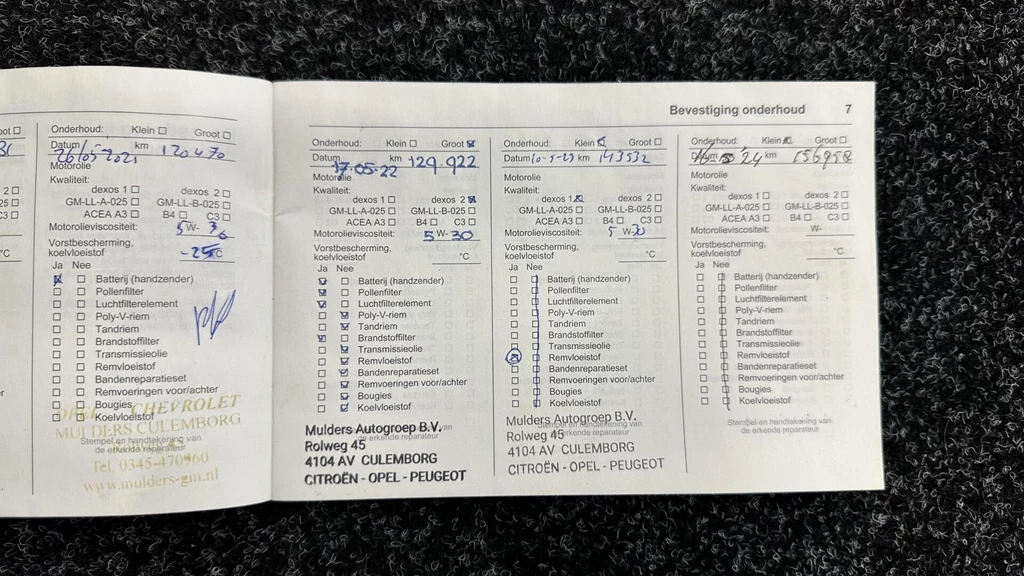 Bevestiging onderhoud 7
Onderhoud: Klein Groot
Datum 26/05-2021 km 120470
Motorolie
Kwaliteit:
dexos 1 dexos 2
GM-LL-A-025 GM-LL-B-025
ACEA A3 B4 C3
Motorolieviscositeit: 5 W- 30
Vorstbescherming,
koelvloeistof -25°C
Ja Nee
Batterij (handzender)
Pollenfilter
Luchtfilterelement
Poly-V-riem
Tandriem
Brandstoffilter
Transmissieolie
Remvloeistof
Bandenreparatieset
Remvoeringen voor/achter
Bougies
Koelvloeistof
OPEL CHEVROLET
MULDERS CULEMBORG
Stempel en handtekening van
de erkende reparateur
Tel. 0345-470960
www.mulders-gm.nl
Onderhoud: Klein Groot
Datum 17-05-22 km 129.922
Motorolie
Kwaliteit:
dexos 1 dexos 2
GM-LL-A-025 GM-LL-B-025
ACEA A3 B4 C3
Motorolieviscositeit: 5 W- 30
Vorstbescherming,
koelvloeistof °C
Ja Nee
Batterij (handzender)
Pollenfilter
Luchtfilterelement
Poly-V-riem
Tandriem
Brandstoffilter
Transmissieolie
Remvloeistof
Bandenreparatieset
Remvoeringen voor/achter
Bougies
Koelvloeistof
Mulders Autogroep B.V.
de erkende reparateur
Rolweg 45
4104 AV CULEMBORG
CITROËN - OPEL - PEUGEOT
Onderhoud: Klein Groot
Datum 10-5-23 km 143532
Motorolie
Kwaliteit:
dexos 1 dexos 2
GM-LL-A-025 GM-LL-B-025
ACEA A3 B4 C3
Motorolieviscositeit: 5 W-30
Vorstbescherming,
koelvloeistof °C
Ja Nee
Batterij (handzender)
Pollenfilter
Luchtfilterelement
Poly-V-riem
Tandriem
Brandstoffilter
Transmissieolie
Remvloeistof
Bandenreparatieset
Remvoeringen voor/achter
Bougies
Koelvloeistof
Mulders Autogroep B.V.
Stempel en handtekening van
Rolweg 45
de erkende reparateur
4104 AV CULEMBORG
CITROËN - OPEL - PEUGEOT
Onderhoud: Klein Groot
Datum 24 km 156958
Motorolie
Kwaliteit:
dexos 1 dexos 2
GM-LL-A-025 GM-LL-B-025
ACEA A3 B4 C3
Motorolieviscositeit: W-
Vorstbescherming,
koelvloeistof °C
Ja Nee
Batterij (handzender)
Pollenfilter
Luchtfilterelement
Poly-V-riem
Tandriem
Brandstoffilter
Transmissieolie
Remvloeistof
Bandenreparatieset
Remvoeringen voor/achter
Bougies
Koelvloeistof
Stempel en handtekening van
de erkende reparateur